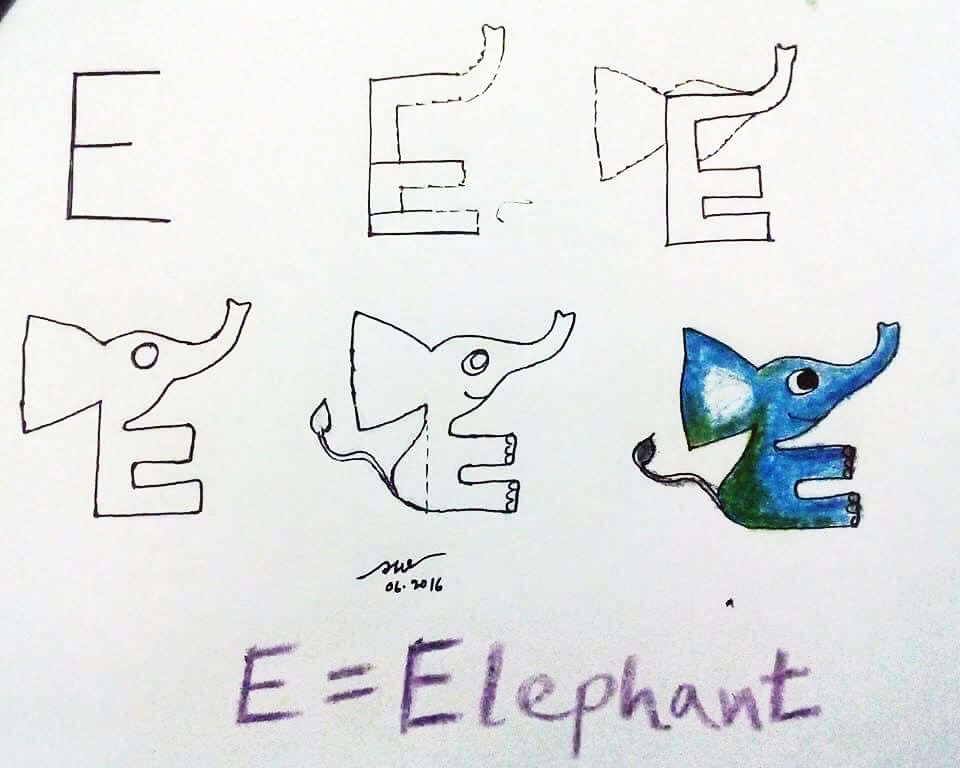 E
06.2016
E = Elephant